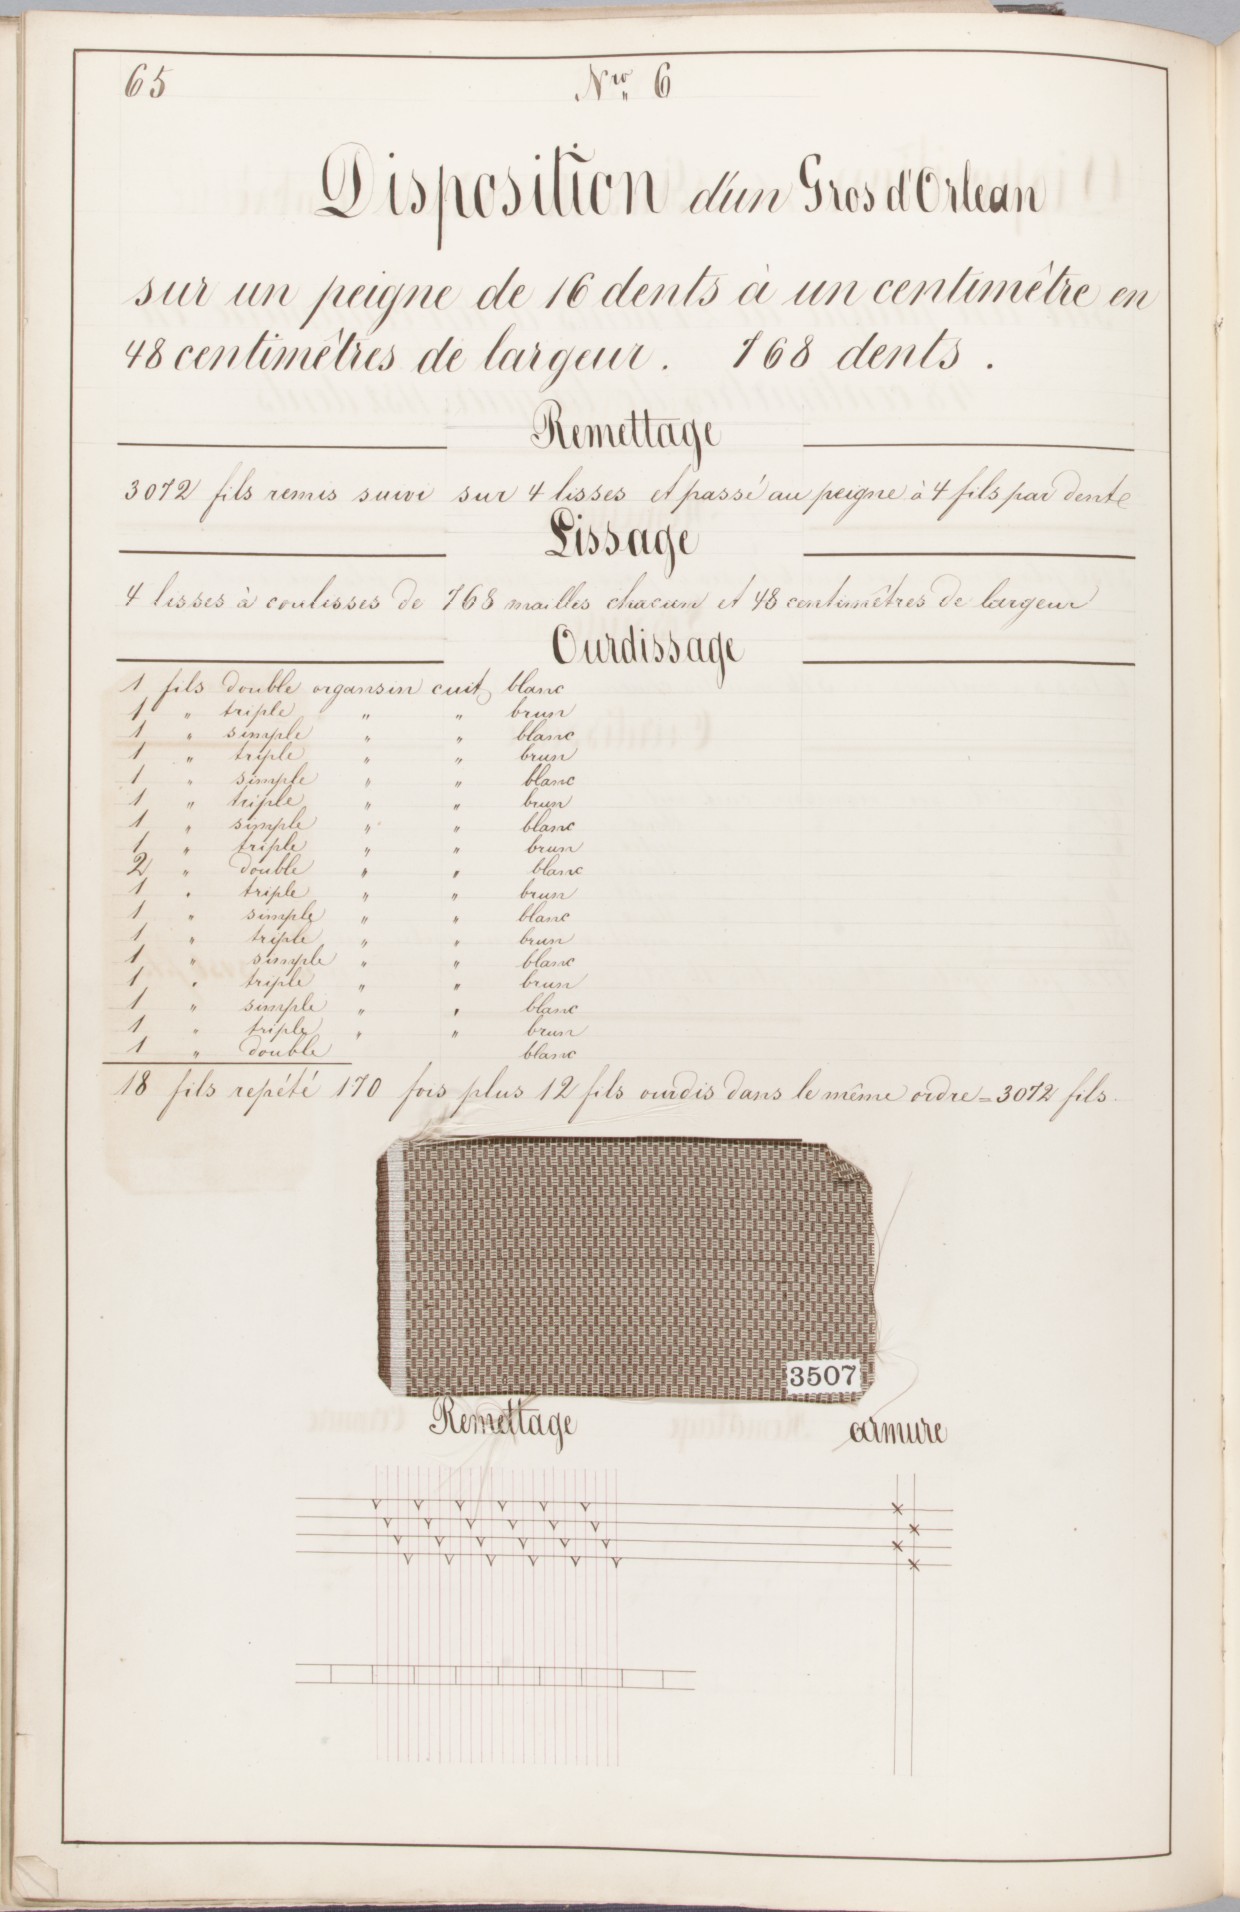 65
Nro 6
Disposition d'un Gros d'Orlean
sur un peigne de 16 dents à un centimêtre en
48 centimêtres de largeur. 768 dents.
Remettage
3072 fils remis suivi sur 4 lisses et passé au peigne à 4 fils par dente
Lissage
4 lisses à coulisses de 768 mailles chacun et 48 centimêtres de largeur
Ourdissage
1 fils double organsin cuit blanc
1 " triple " " brun
1 " simple " " blanc
1 " triple " " brun
1 " simple " " blanc
1 " triple " " brun
1 " simple " " blanc
1 " triple " " brun
2 " double " " blanc
1 " triple " " brun
1 " simple " " blanc
1 " triple " " brun
1 " simple " " blanc
1 " triple " " brun
1 " simple " " blanc
1 " triple " " brun
1 " double blanc
18 fils repété 170 fois plus 12 fils ourdis dans le même ordre = 3072 fils.
3507
Remettage armure